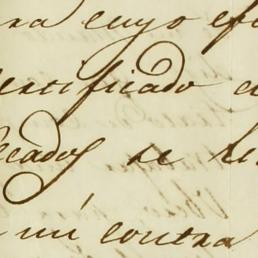 ra cuyo efe
ertificado e
cados se le
mi contra